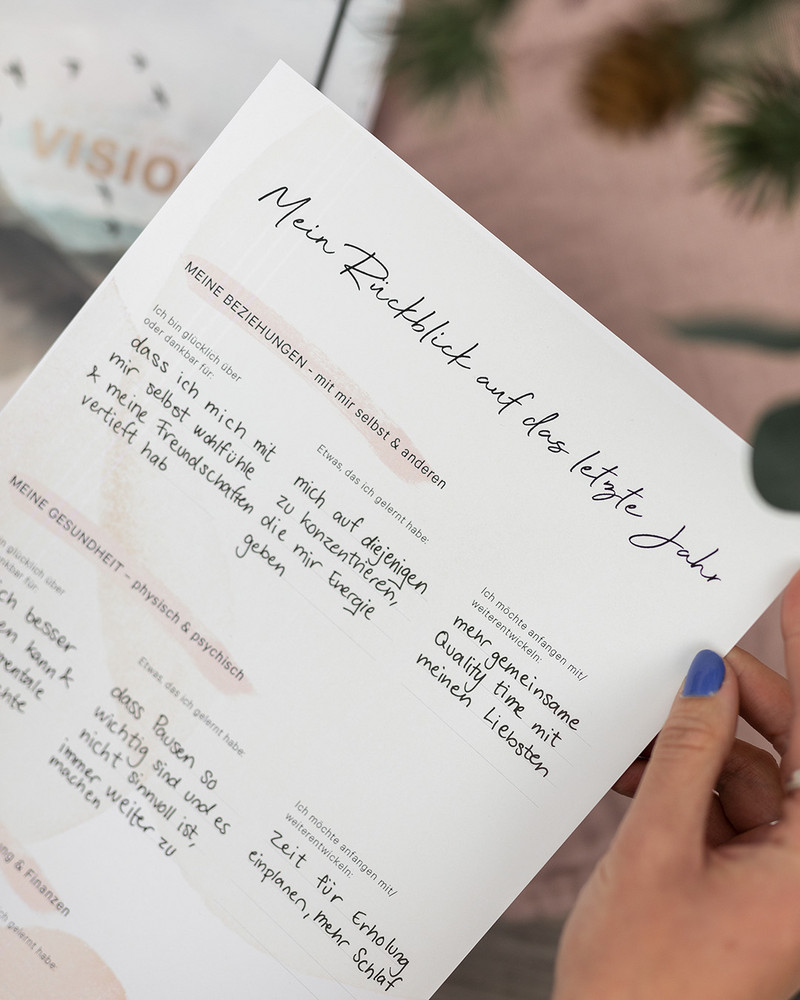 VISIO
Mein Rückblick auf das letzte Jahr
MEINE BEZIEHUNGEN - mit mir selbst & anderen
Ich bin glücklich über
oder dankbar für:
dass ich mich mit
mir selbst wohlfühle
& meine Freundschaften
vertieft hab
Etwas, das ich gelernt habe:
mich auf diejenigen
zu konzentrieren,
die mir Energie
geben
Ich möchte anfangen mit/
weiterentwickeln:
mehr gemeinsame
Quality time mit
meinen Liebsten
MEINE GESUNDHEIT - physisch & psychisch
glücklich über
für:
besser
kann &
Etwas, das ich gelernt habe:
dass Pausen so
wichtig sind und es
nicht sinnvoll ist,
immer weiter zu
machen
Ich möchte anfangen mit/
weiterentwickeln:
Zeit für Erholung
einplanen, mehr Schlaf
& Finanzen
ich gelernt habe: